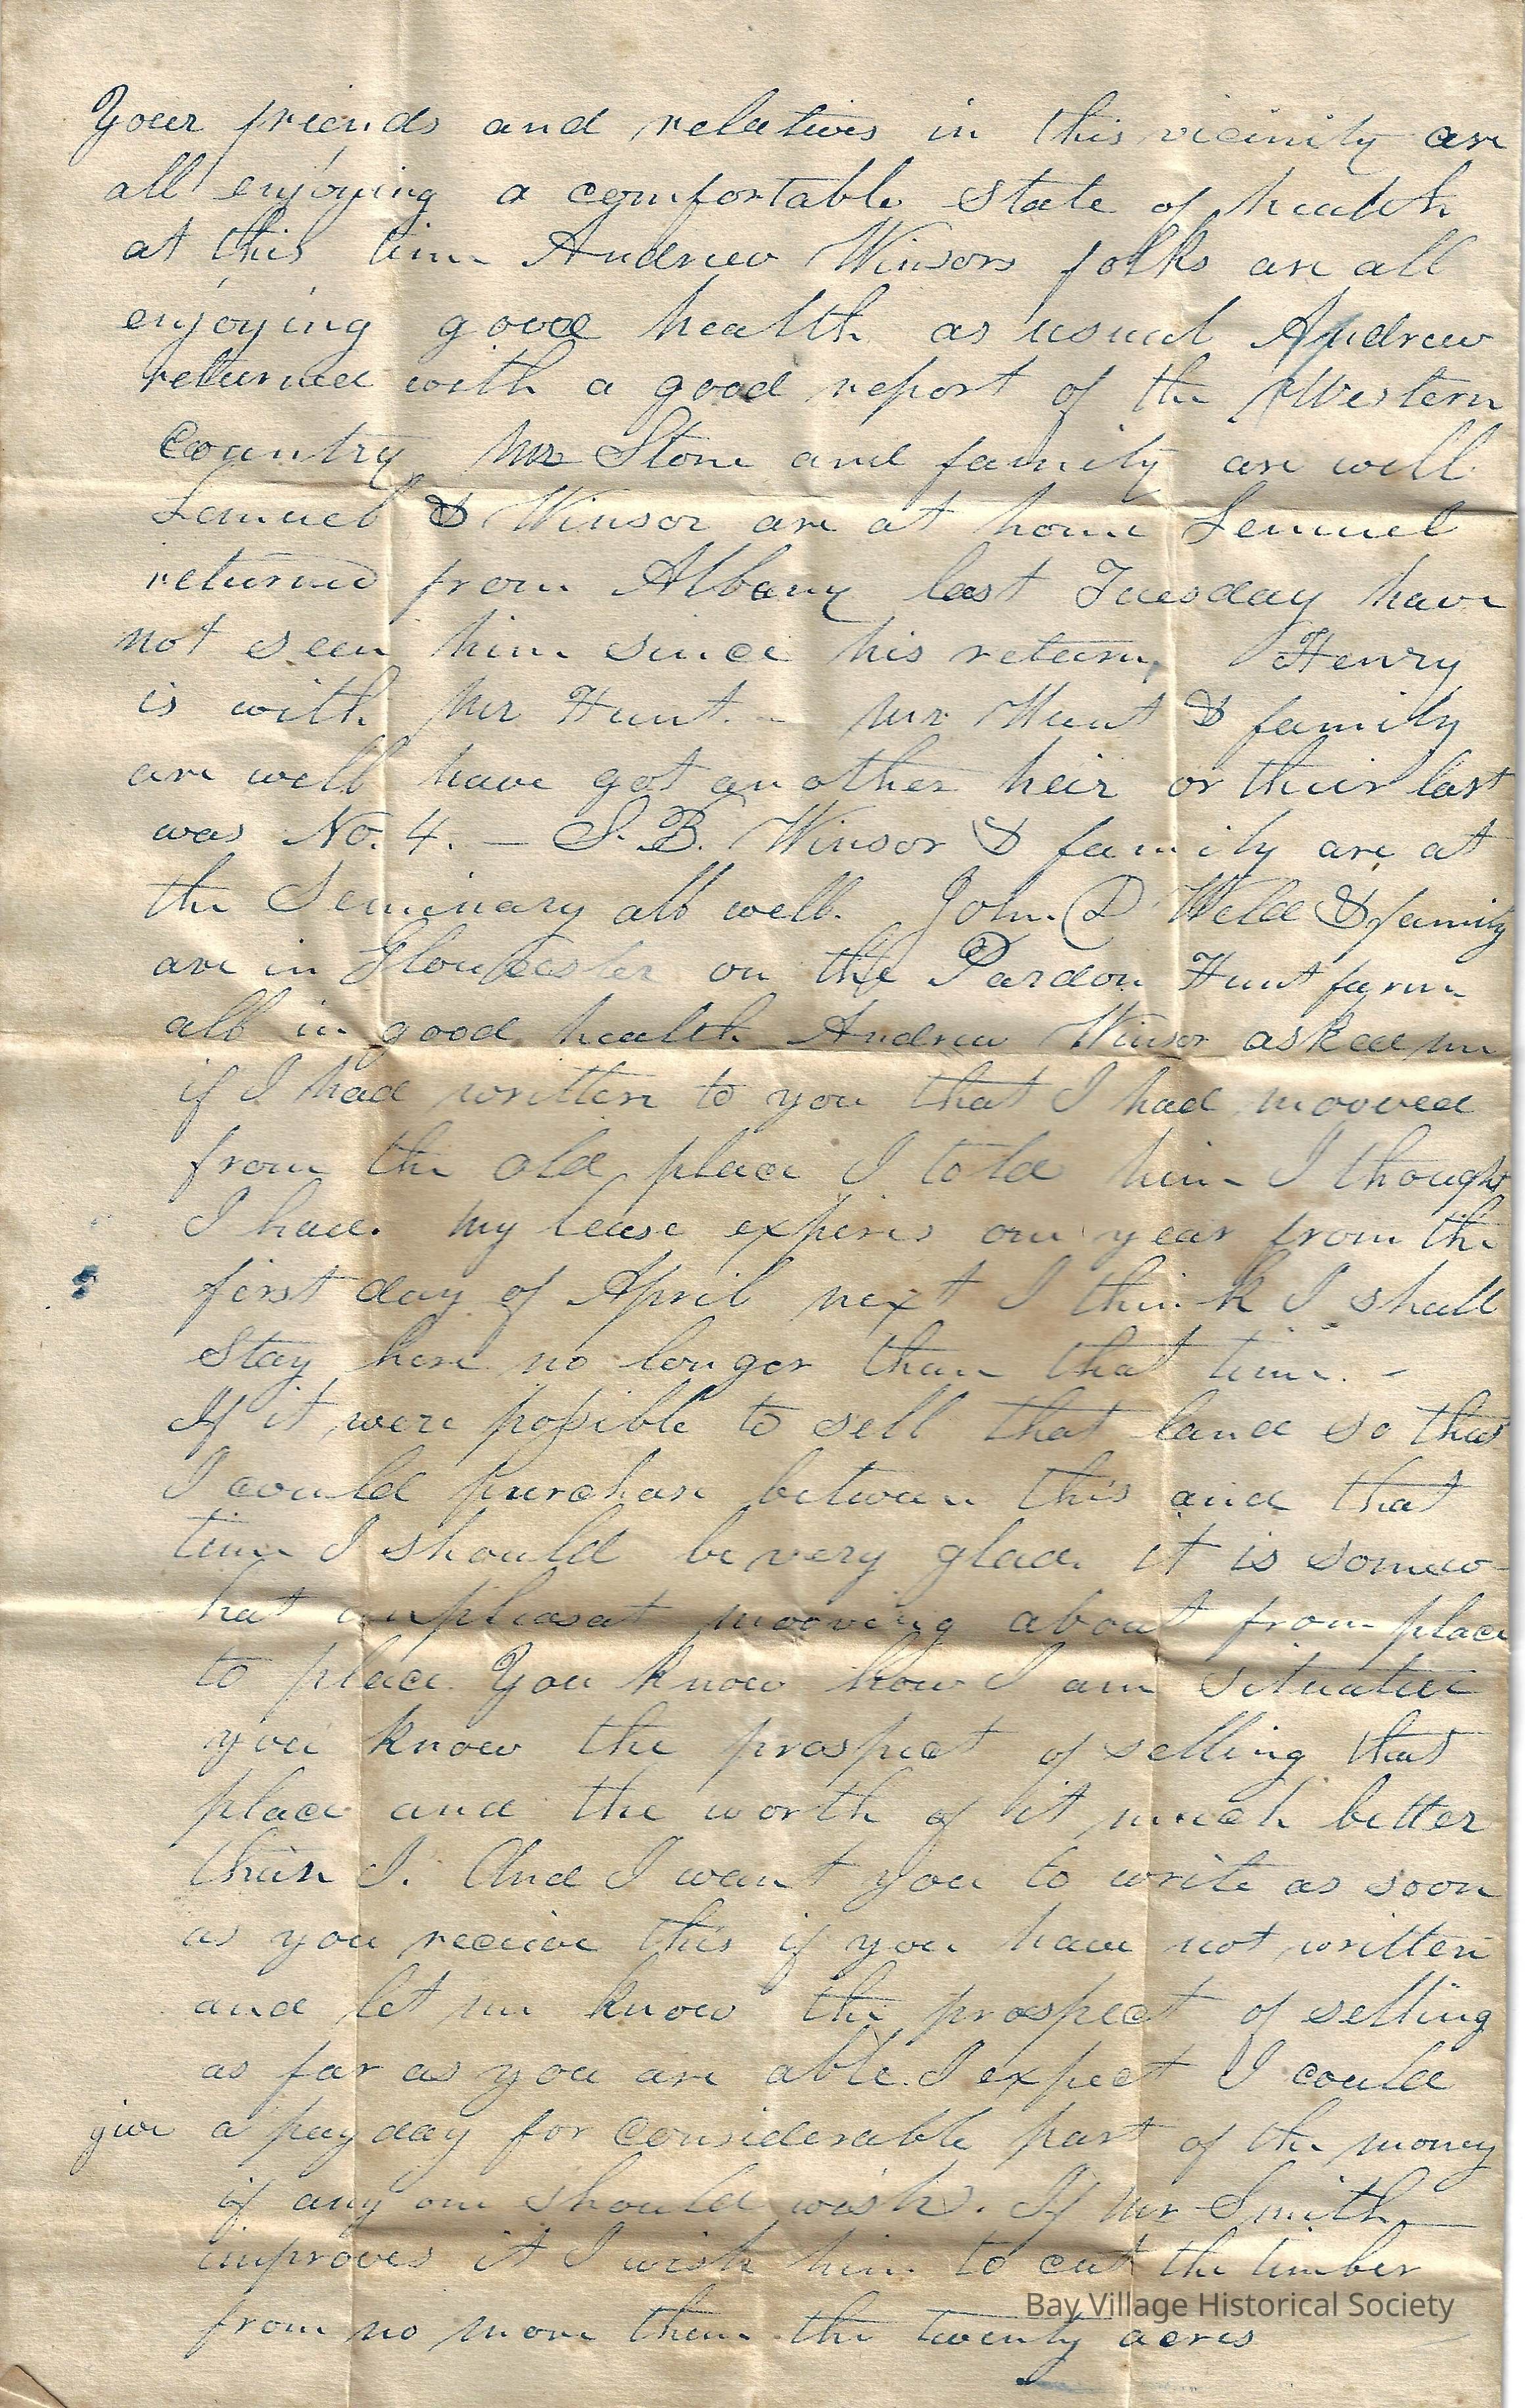 Your friends and relatives in this vicinity are
all enjoying a comfortable state of health
at this time Andrew Winsors folks are all
enjoying good health as usual Andrew
returned with a good report of the Western
Country Mr Stone and family are well
Lemuel & Winsor are at home Lemuel
returned from Albany last Tuesday have
not seen him since his return, Henry
is with Mr Hunt. - Mr Hunt & family
are well have got another heir or their last
was No. 4. — S. B. Winsor & family are at
the Seminary all well. John D Weld & family
are in Gloucester on the Pardon Hunt farm
all in good health Andrew Winsor asked me
if I had written to you that I had mooved
from the old place I told him I thought
I had. my lease expires one year from the
first day of April next I think I shall
Stay here no longer than that time. -
If it were possible to sell that land so that
I could purchase between this and that
time I should be very glad. it is somew-
hat unpleasat mooving about from place
to place. You know how I am situated
you know the prospect of selling that
place and the worth of it much better
than I. And I want you to write as soon
as you receive this if you have not written
and let me know the prospect of selling
as far as you are able. I expect I could
give a pay day for considerable part of the money
if any one should wish. If Mr Smith
improves it I wish him to cut the timber
from no more than the twenty acres
Bay Village Historical Society